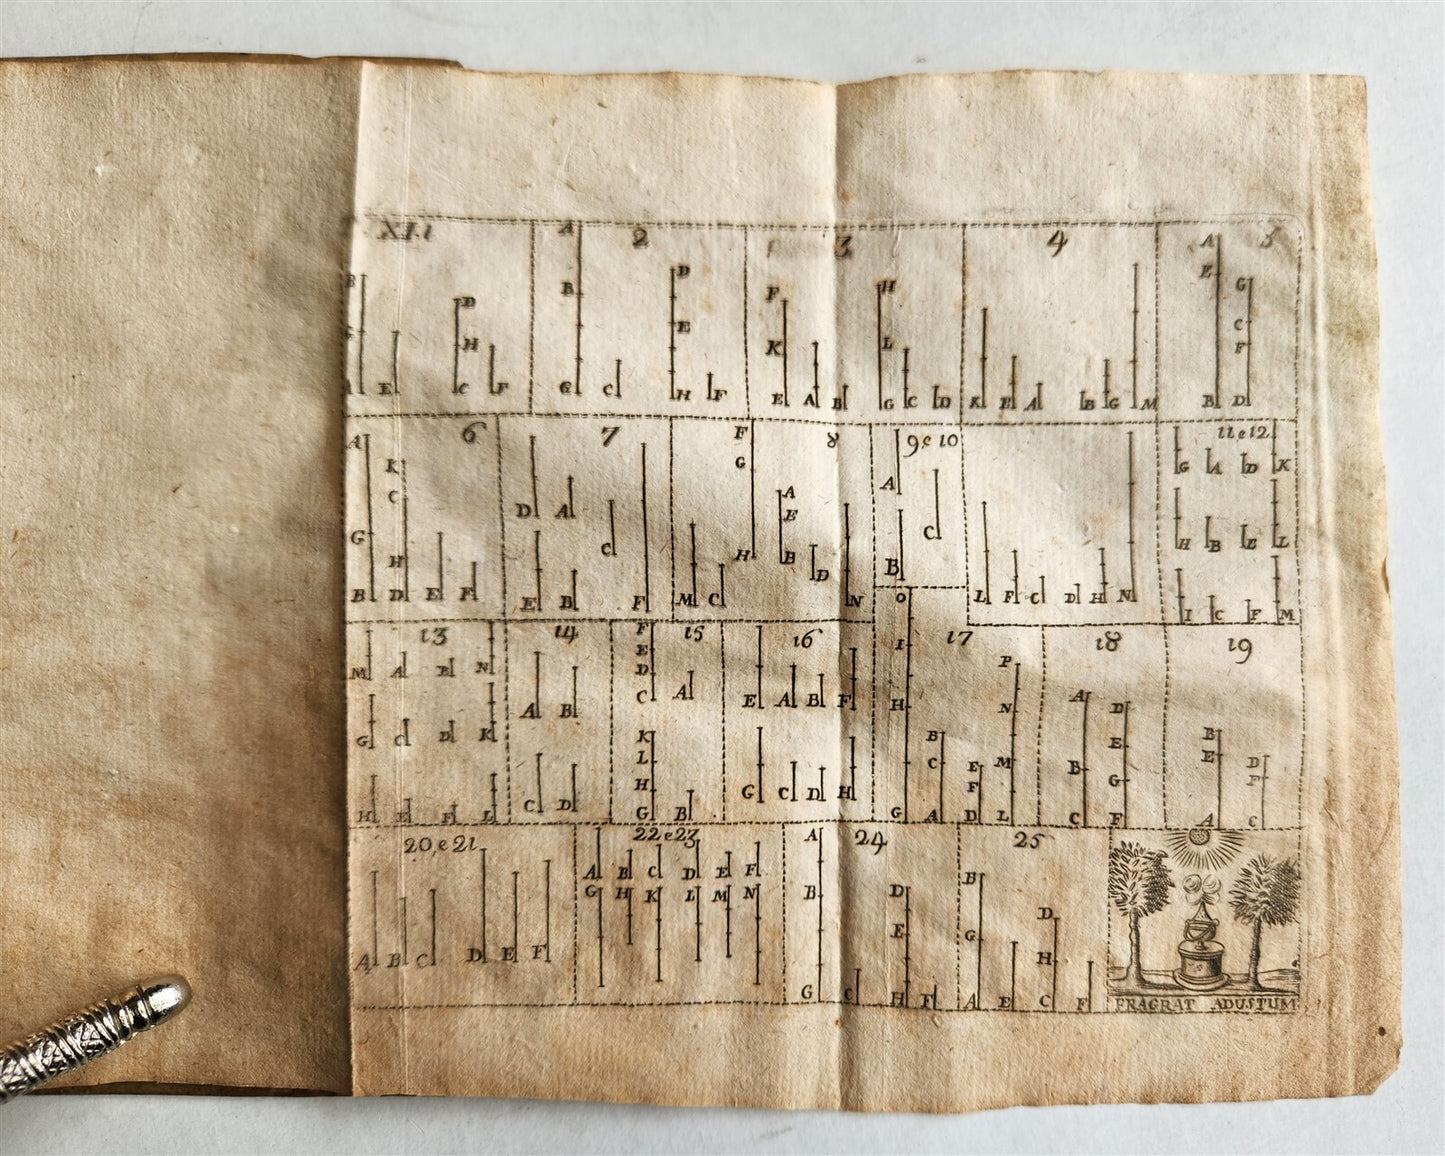 XI.1 2 3 4 5
A D
B B H
F E
D E G
H E K L C F
E C F G C H F E A B G C D K E A B G M B D
6 7 8 9 e 10 11 e 12
A F
K G
C A E G A D K
D A B A
G C C
H H B D H B E L
B D E F E B F M C N L F C D H N I C F M
O
13 14 15 16 17 18 19
F E D C I P
M A B N A E A B F
A B H N A D
G C D K K L H G B C E F M B E G B E D F
C D B G C D H
H E F L G A D L C F A C
20 e 21 22 e 23 24 25
A B C D E F A
G H K L M N B D B D
E G H
A B C D E F
G C H F A E C F
FRAGRAT ADUSTUM